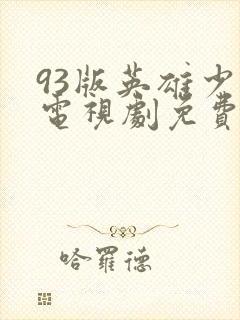 93版英雄少
電視劇免費
哈羅德